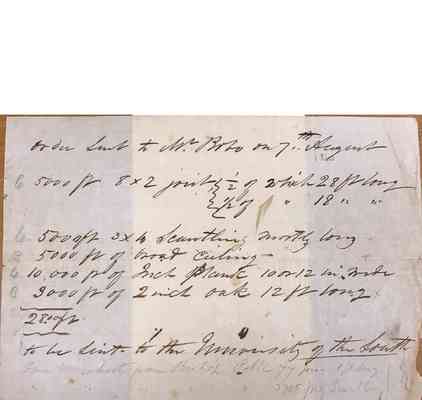 Order Sent to Mr. Bobo on 7th August
6 5000 ft 8 x 2 joist { 1/2 of which 28 ft long
{ 1/2 of " 18 " "
6 5000 ft 3 x 4 Scantling mostly long
5000 ft of broad Ceiling -
6 10,000 ft of Inch Plank 10 or 12 in. wide
6 3000 ft of 2 inch oak 12 ft long.
2800 ft.
to be Sent to the University of the South